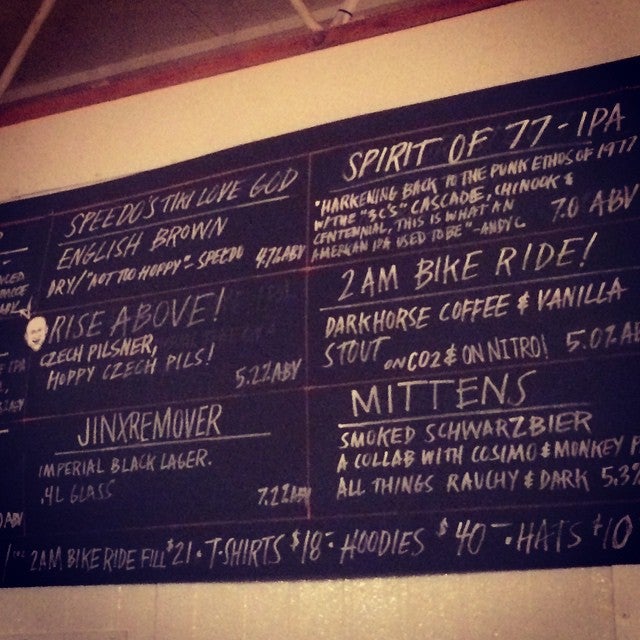 SPEEDO'S TIKI LOVE GOD
ENGLISH BROWN
DRY/"NOT TOO HOPPY"- SPEEDO 4.7% ABV
RISE ABOVE!
CZECH PILSNER,
HOPPY CZECH PILS!
5.2% ABV
JINXREMOVER
IMPERIAL BLACK LAGER.
.4L GLASS
7.2% ABV
SPIRIT OF 77 - IPA
"HARKENING BACK TO THE PUNK ETHOS OF 1977
W/THE "3C'S" CASCADE, CHINOOK &
CENTENNIAL, THIS IS WHAT AN
AMERICAN IPA USED TO BE" - ANDY C
7.0 ABV
2AM BIKE RIDE!
DARKHORSE COFFEE & VANILLA
STOUT ON CO2 & ON NITRO! 5.0% AB
MITTENS
SMOKED SCHWARZBIER
A COLLAB WITH COSIMO & MONKEY P
ALL THINGS RAUCHY & DARK 5.3%
2AM BIKE RIDE FILL $21 • T-SHIRTS $18 - • HOODIES $40 - • HATS $10